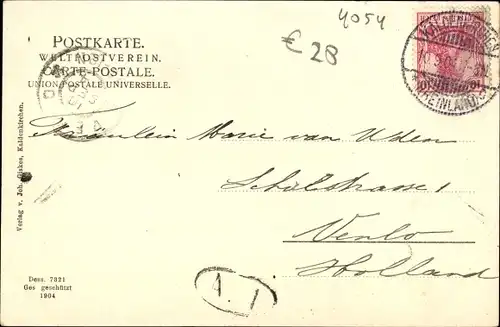 4054
€ 28
POSTKARTE.
WELTPOSTVEREIN.
CARTE-POSTALE.
UNION POSTALE UNIVERSELLE.
KALDENKIRCHEN
RHEINLAND
Fräulein Marie van Uden
Schoolstrasse 1
Venlo
Holland
Verlag v. Joh. Giskes, Kaldenkirchen.
Dess. 7321
Ges geschützt
1904
A. 1